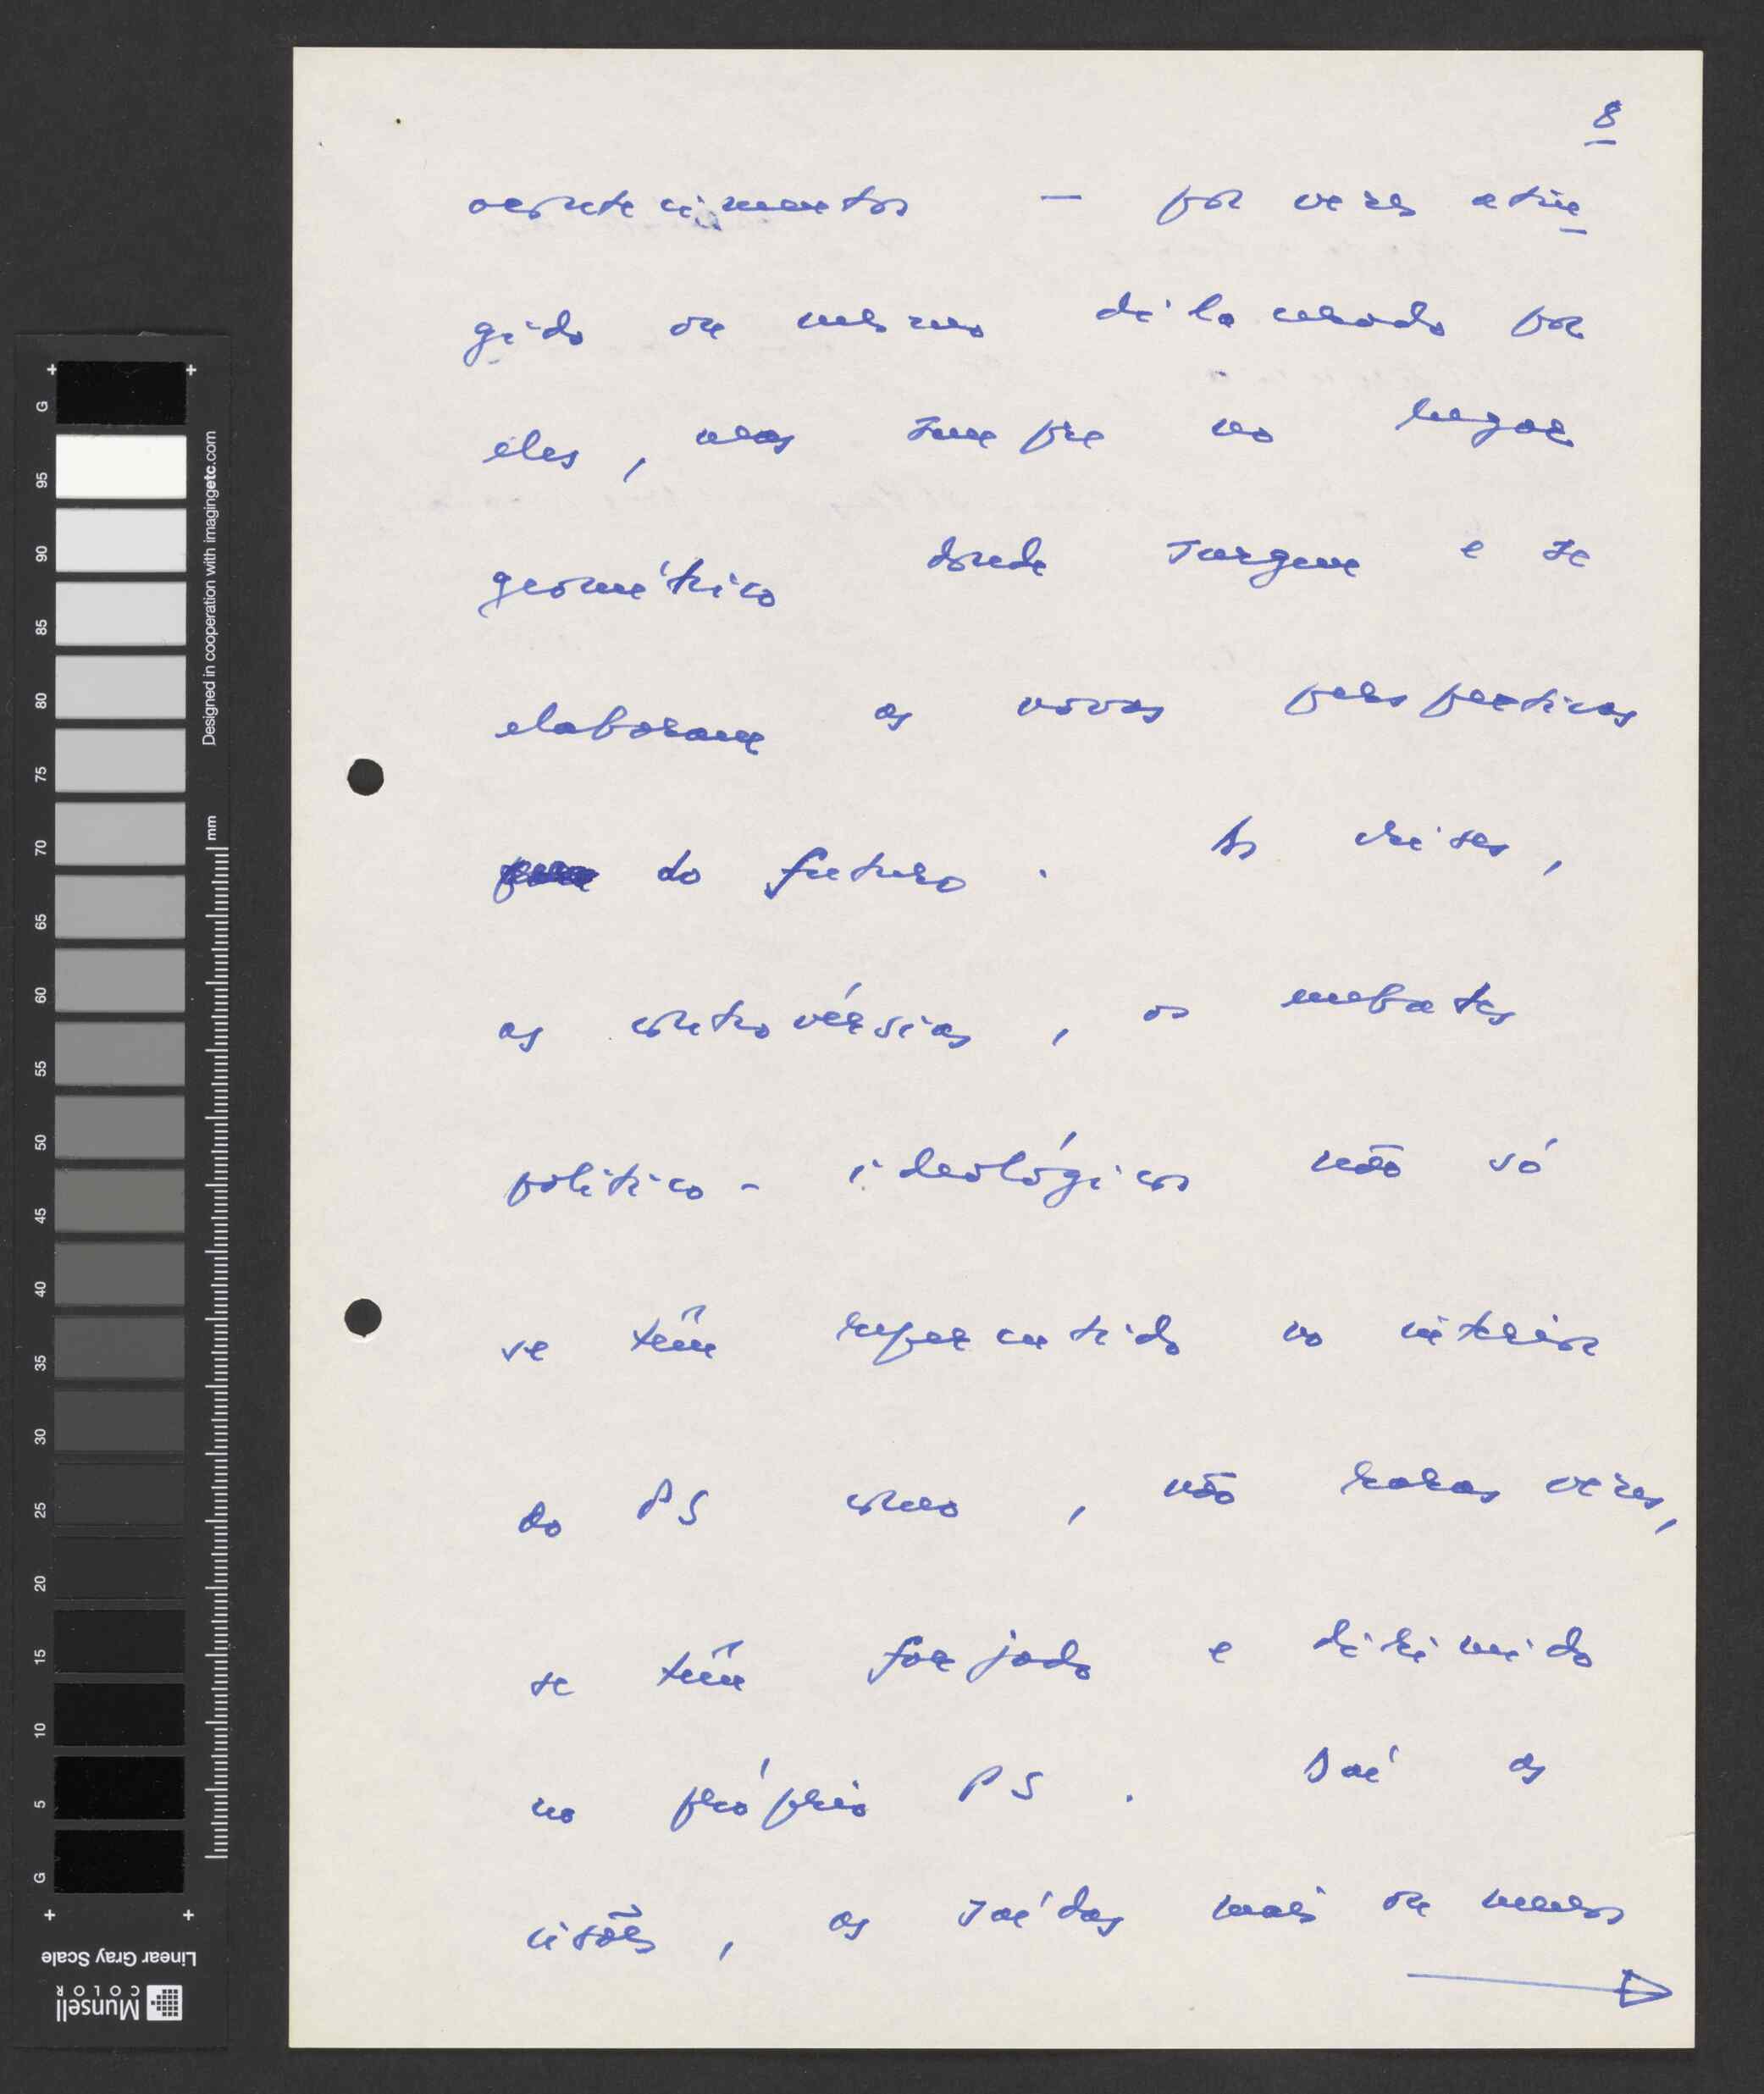 8
acontecimentos — por vezes atin
gido ou mesmo dilacerado por
eles, mas sempre no lugar
geométrico donde surgem e se
elaboram as novas perspectivas
do futuro. As crises,
as controvérsias, os embates
politico-ideológicos não só
se têm repercutido no interior
do PS como, não raras vezes,
se têm forjado e dirimido
no próprio PS. Daí as
cisões, as saídas mais ou menos
G
95
90
85
80
75
70
65
60
55
50
45
40
35
30
25
20
15
10
5
G
Designed in cooperation with imagingetc.com
mm
Linear Gray Scale
Munsell
COLOR